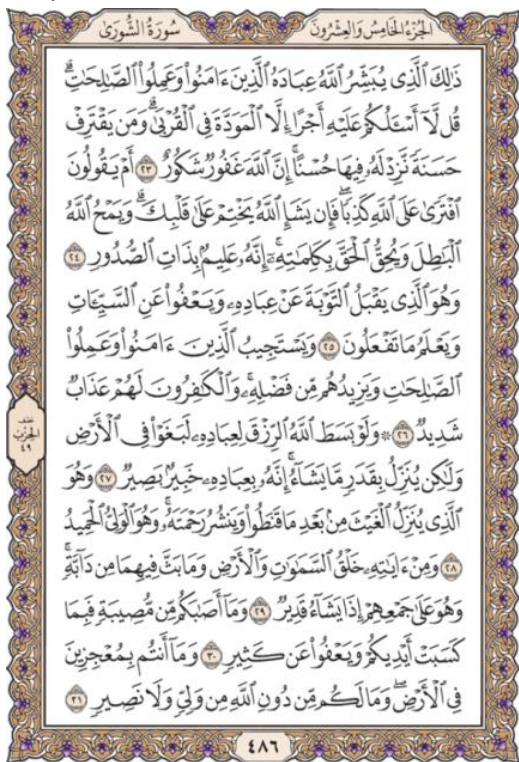 الجزء الخامس والعشرون
سورة الشورى
ذَٰلِكَ ٱلَّذِى يُبَشِّرُ ٱللَّهُ عِبَادَهُ ٱلَّذِينَ ءَامَنُوا۟ وَعَمِلُوا۟ ٱلصَّـٰلِحَـٰتِ ۗ
قُل لَّآ أَسْـَٔلُكُمْ عَلَيْهِ أَجْرًا إِلَّا ٱلْمَوَدَّةَ فِى ٱلْقُرْبَىٰ ۗ وَمَن يَقْتَرِفْ
حَسَنَةً نَّزِدْ لَهُۥ فِيهَا حُسْنًا ۚ إِنَّ ٱللَّهَ غَفُورٌ شَكُورٌ ٢٣ أَمْ يَقُولُونَ
ٱفْتَرَىٰ عَلَى ٱللَّهِ كَذِبًا ۖ فَإِن يَشَإِ ٱللَّهُ يَخْتِمْ عَلَىٰ قَلْبِكَ ۗ وَيَمْحُ ٱللَّهُ
ٱلْبَـٰطِلَ وَيُحِقُّ ٱلْحَقَّ بِكَلِمَـٰتِهِۦٓ ۚ إِنَّهُۥ عَلِيمٌۢ بِذَاتِ ٱلصُّدُورِ ٢٤
وَهُوَ ٱلَّذِى يَقْبَلُ ٱلتَّوْبَةَ عَنْ عِبَادِهِۦ وَيَعْفُوا۟ عَنِ ٱلسَّيِّـَٔاتِ
وَيَعْلَمُ مَا تَفْعَلُونَ ٢٥ وَيَسْتَجِيبُ ٱلَّذِينَ ءَامَنُوا۟ وَعَمِلُوا۟
ٱلصَّـٰلِحَـٰتِ وَيَزِيدُهُم مِّن فَضْلِهِۦ ۚ وَٱلْكَـٰفِرُونَ لَهُمْ عَذَابٌ
شَدِيدٌ ٢٦ ۞ وَلَوْ بَسَطَ ٱللَّهُ ٱلرِّزْقَ لِعِبَادِهِۦ لَبَغَوْا۟ فِى ٱلْأَرْضِ
وَلَـٰكِن يُنَزِّلُ بِقَدَرٍ مَّا يَشَآءُ ۚ إِنَّهُۥ بِعِبَادِهِۦ خَبِيرٌۢ بَصِيرٌ ٢٧ وَهُوَ
ٱلَّذِى يُنَزِّلُ ٱلْغَيْثَ مِنۢ بَعْدِ مَا قَنَطُوا۟ وَيَنشُرُ رَحْمَتَهُۥ ۚ وَهُوَ ٱلْوَلِىُّ ٱلْحَمِيدُ
٢٨ وَمِنْ ءَايَـٰتِهِۦ خَلْقُ ٱلسَّمَـٰوَٰتِ وَٱلْأَرْضِ وَمَا بَثَّ فِيهِمَا مِن دَآبَّةٍ ۚ
وَهُوَ عَلَىٰ جَمْعِهِمْ إِذَا يَشَآءُ قَدِيرٌ ٢٩ وَمَآ أَصَـٰبَكُم مِّن مُّصِيبَةٍ فَبِمَا
كَسَبَتْ أَيْدِيكُمْ وَيَعْفُوا۟ عَن كَثِيرٍ ٣٠ وَمَآ أَنتُم بِمُعْجِزِينَ
فِى ٱلْأَرْضِ ۖ وَمَا لَكُم مِّن دُونِ ٱللَّهِ مِن وَلِىٍّ وَلَا نَصِيرٍ ٣١
نصف
الحزب
٤٩
٤٨٦